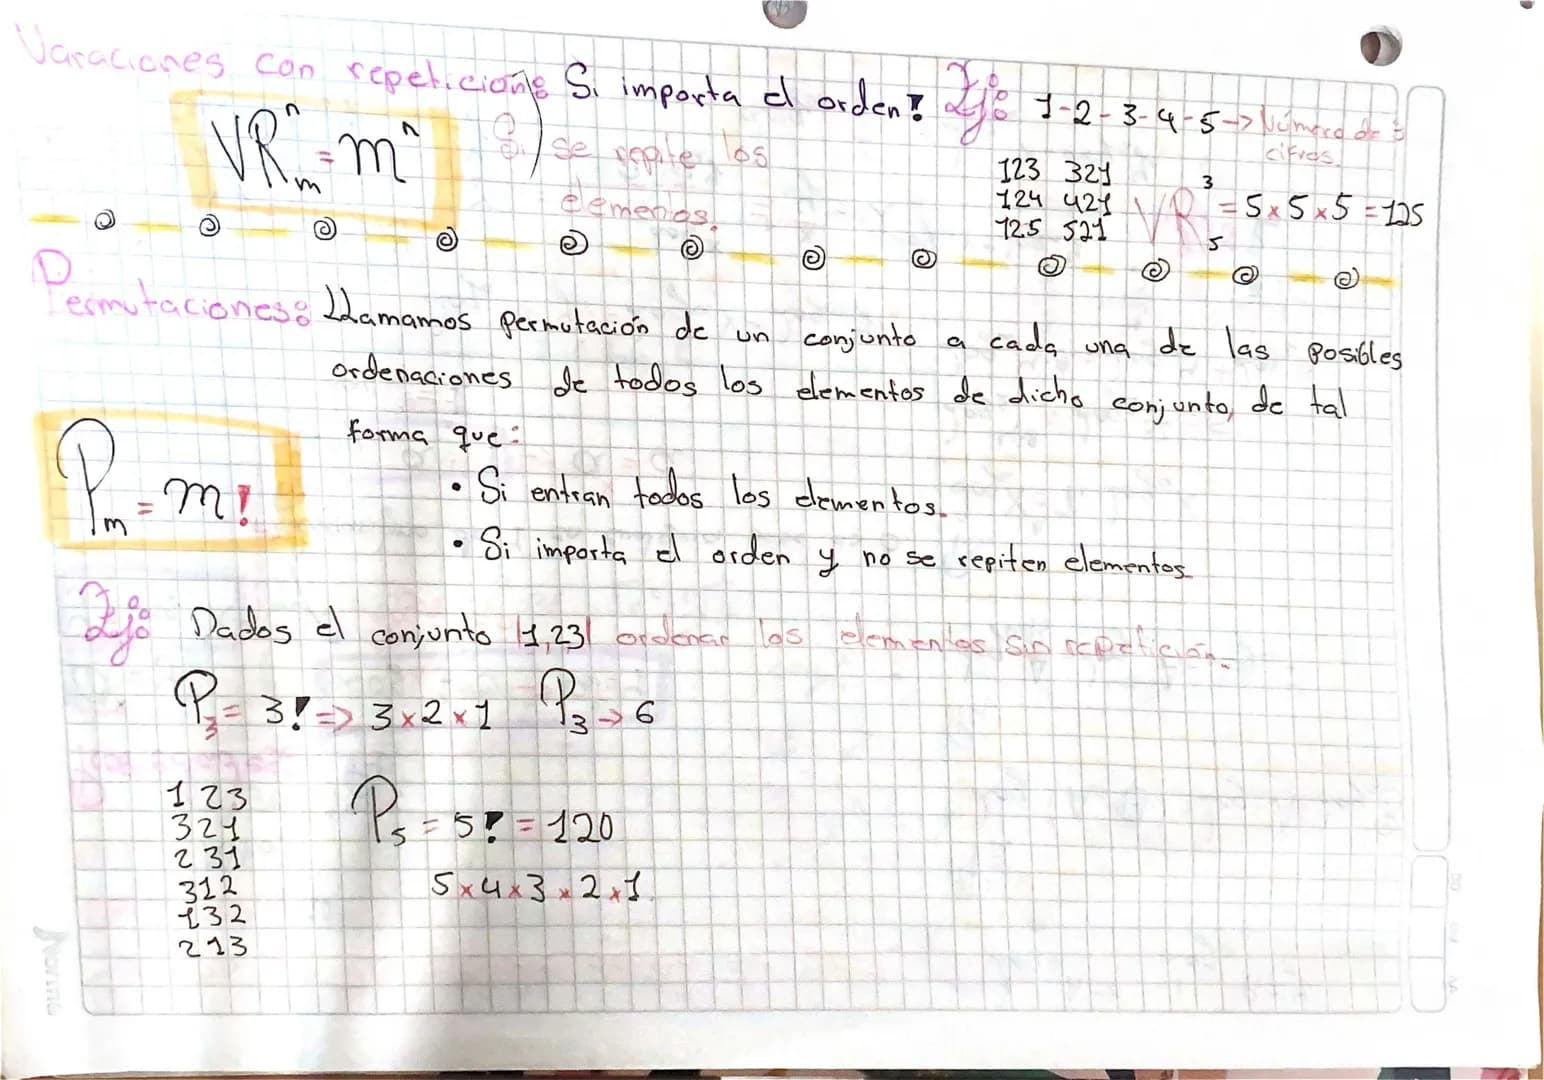 Varaciones con repeticion: Si importa el orden! Ej: 1-2-3-4-5-> Número de 3 cifras
VRₘⁿ = mⁿ
Si se repite los elementos.
123 321
124 421
125 521
VR₅³ = 5x5x5 = 125
Permutaciones: Llamamos permutación de un conjunto a cada una de las posibles
ordenaciones de todos los elementos de dicho conjunto, de tal
forma que:
Pₘ = m!
• Si entran todos los elementos.
• Si importa el orden y no se repiten elementos
Ej: Dados el conjunto |1,23| ordenar los elementos sin repetición.
P₃ = 3! => 3x2x1 P₃ -> 6
123
321
231
312
132
213
P₅ = 5! = 120
5x4x3x2x1